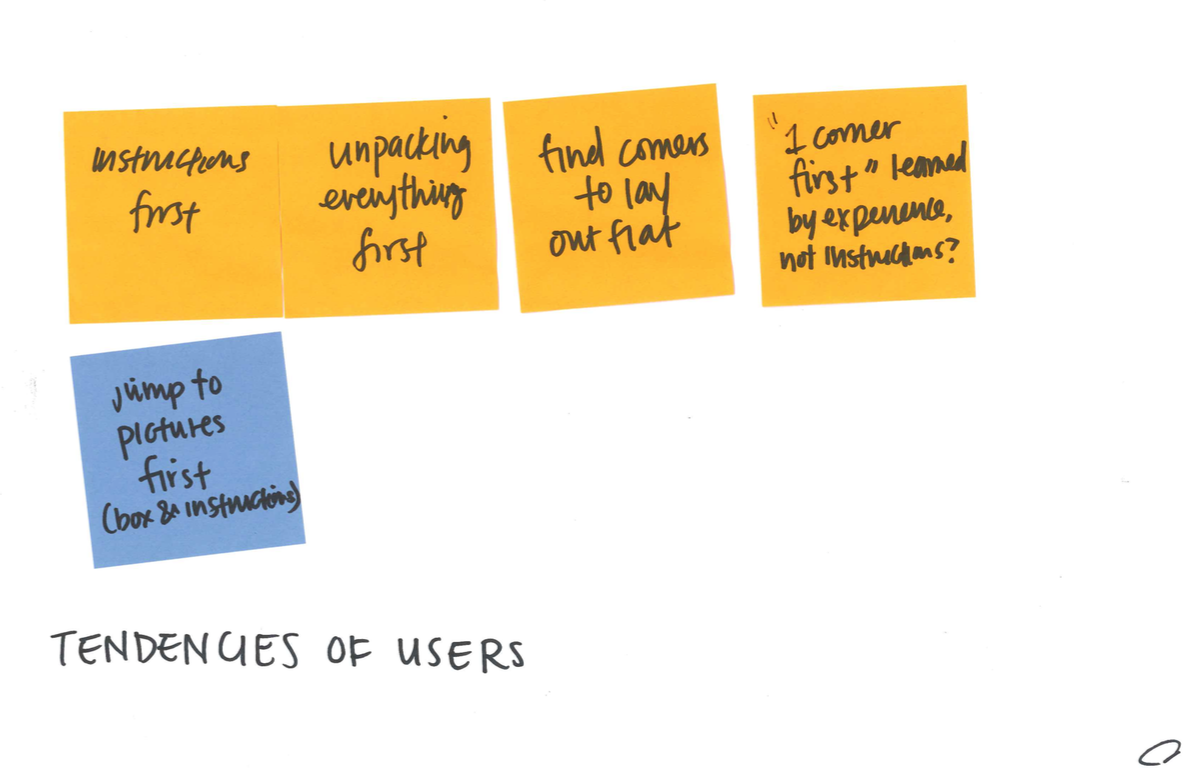 instructions
first
unpacking
everything
first
find corners
to lay
out flat
"1 corner
first" learned
by experience,
not instructions?
jump to
pictures
first
(box & instructions)
TENDENCIES OF USERS